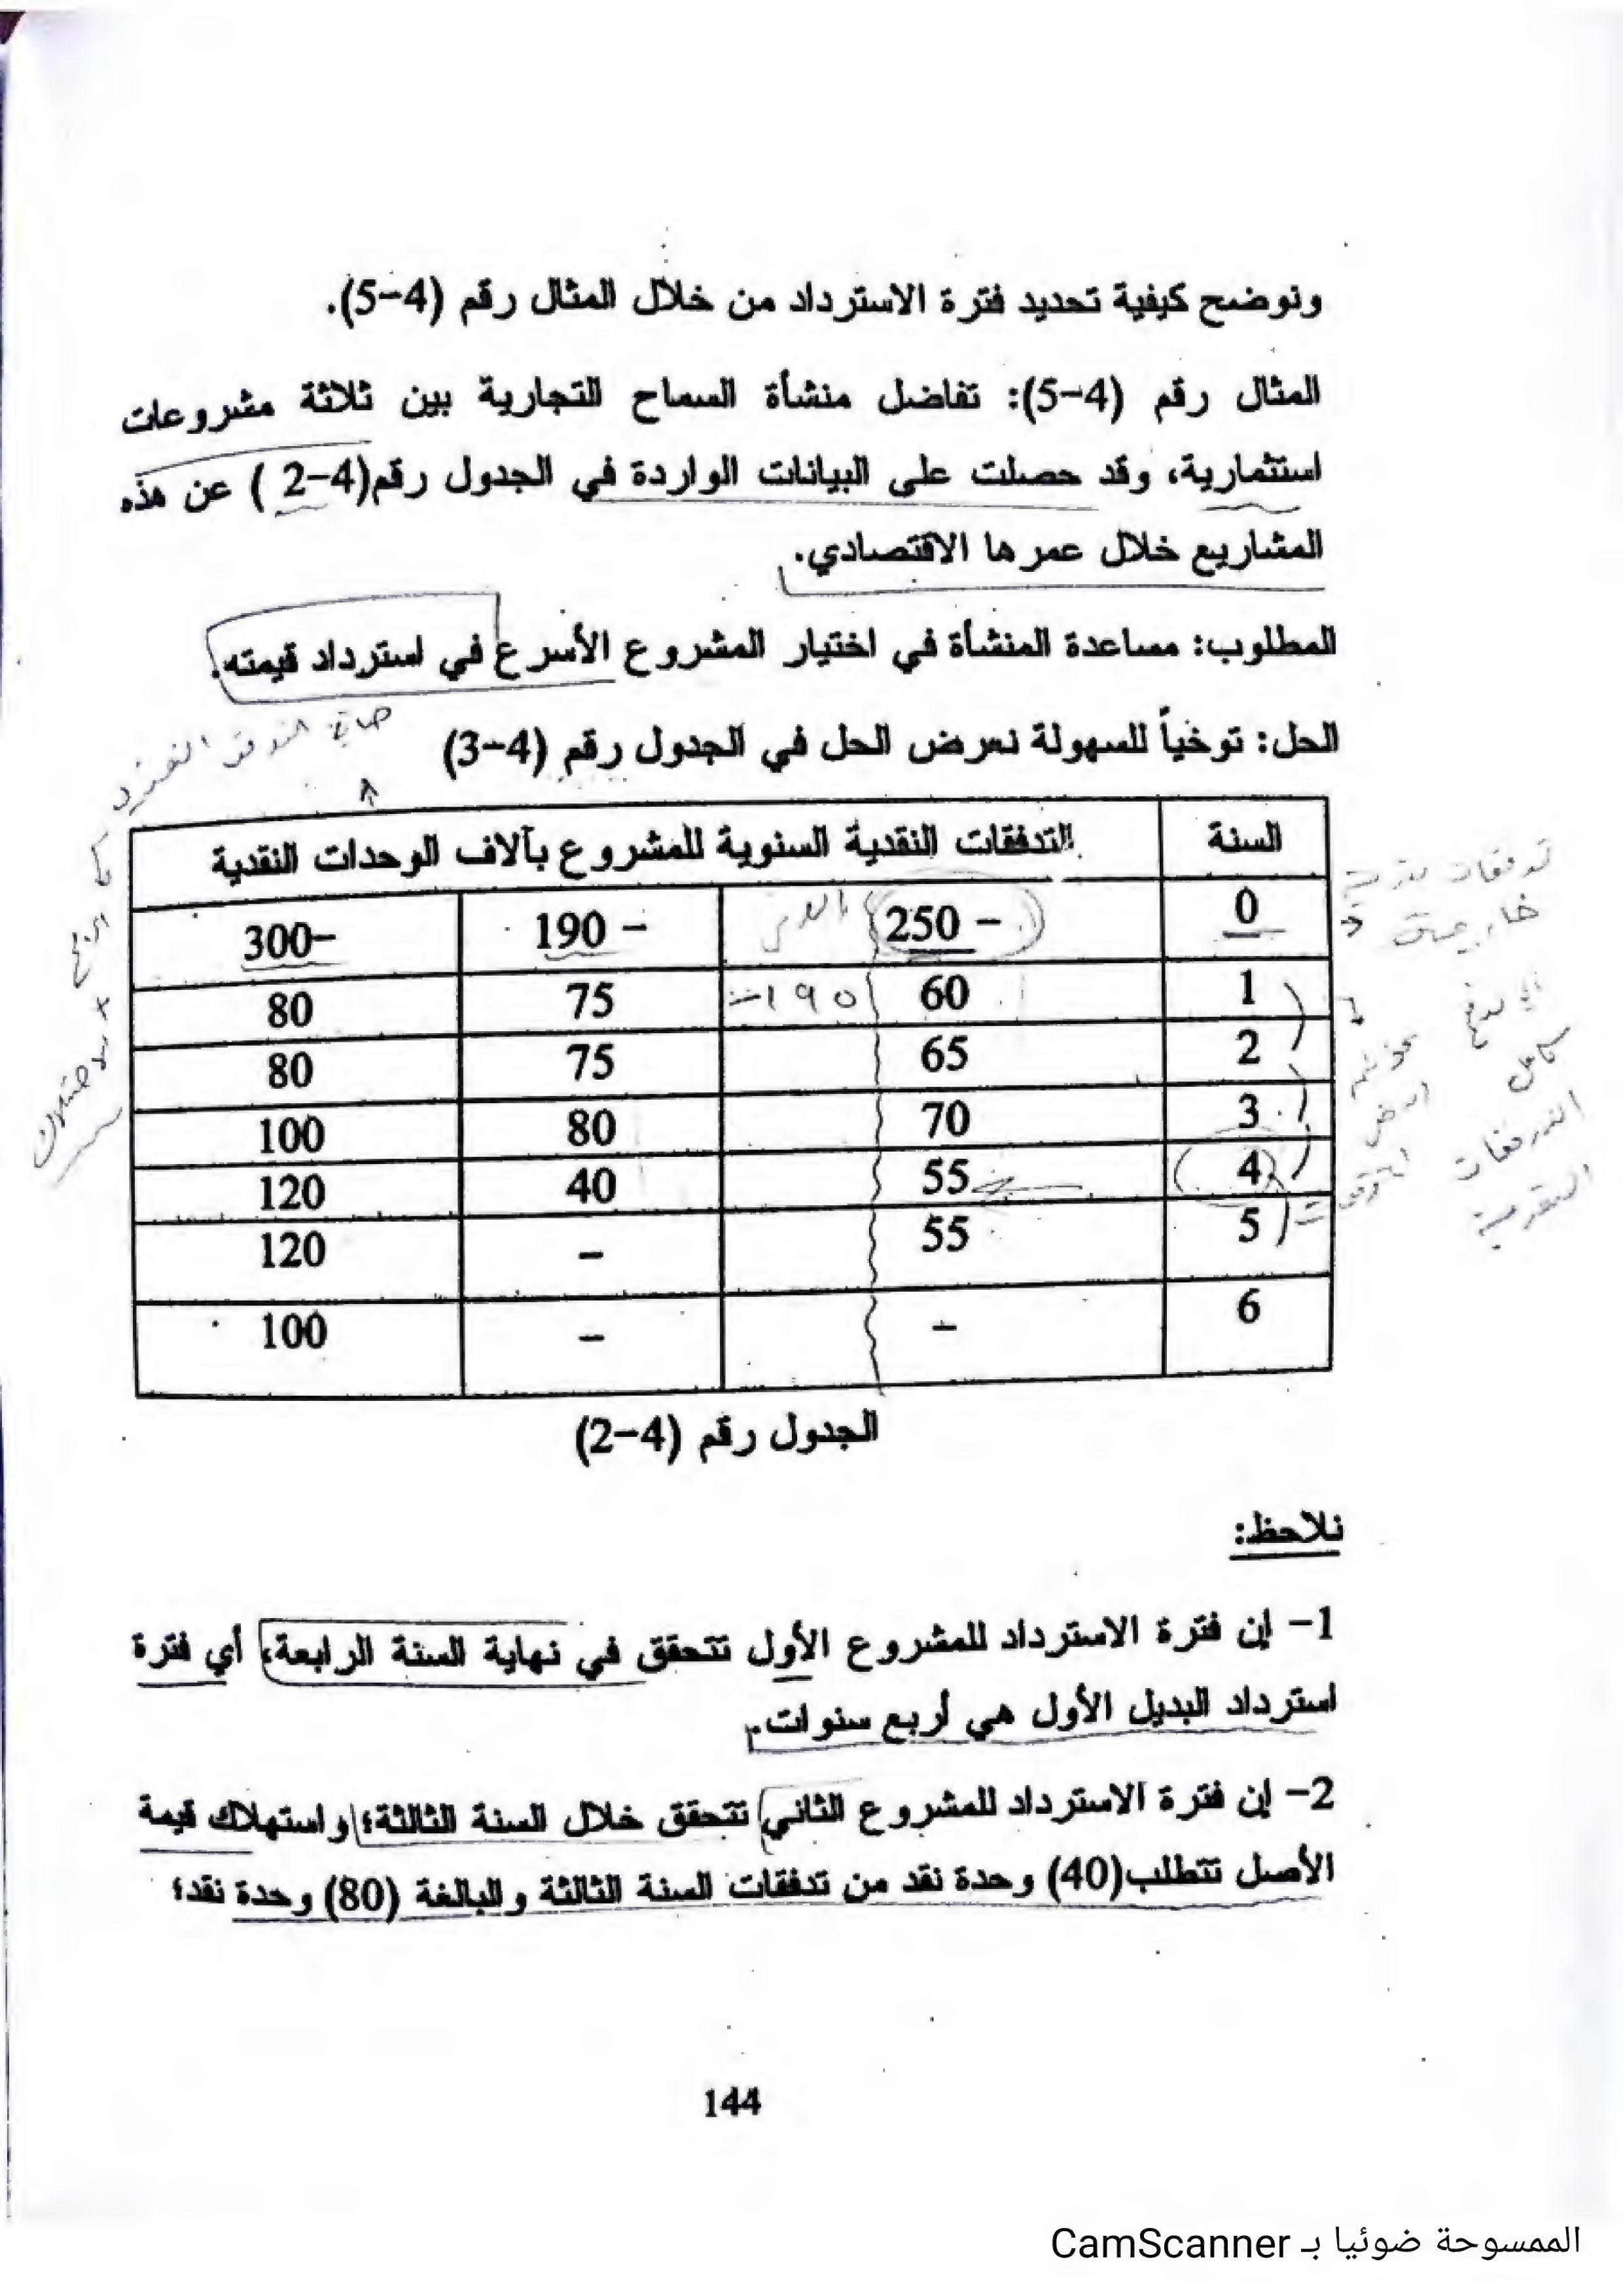 ونوضح كيفية تحديد فترة الاسترداد من خلال المثال رقم (4-5).
المثال رقم (4-5): تفاضل منشأة السماح التجارية بين ثلاثة مشروعات
استثمارية، وقد حصلت على البيانات الواردة في الجدول رقم(4-2 ) عن هذه
المشاريع خلال عمرها الاقتصادي.
المطلوب: مساعدة المنشأة في اختيار المشروع الأسرع في استرداد قيمته.
الحل: توخياً للسهولة نعرض الحل في الجدول رقم (4-3)
السنة التدفقات النقدية السنوية للمشروع بآلاف الوحدات النقدية
0 250 - 190 - 300-
1 60 190- 75 80
2 65 75 80
3 70 80 100
4 55 40 120
5 55 - 120
6 - - 100
الجدول رقم (4-2)
نلاحظ:
1- إن فترة الاسترداد للمشروع الأول تتحقق في نهاية السنة الرابعة، أي فترة
استرداد البديل الأول هي أربع سنوات.
2- إن فترة الاسترداد للمشروع الثاني تتحقق خلال السنة الثالثة؛ واستهلاك قيمة
الأصل تتطلب(40) وحدة نقد من تدفقات السنة الثالثة والبالغة (80) وحدة نقد؛
144
الممسوحة ضوئيا بـ CamScanner